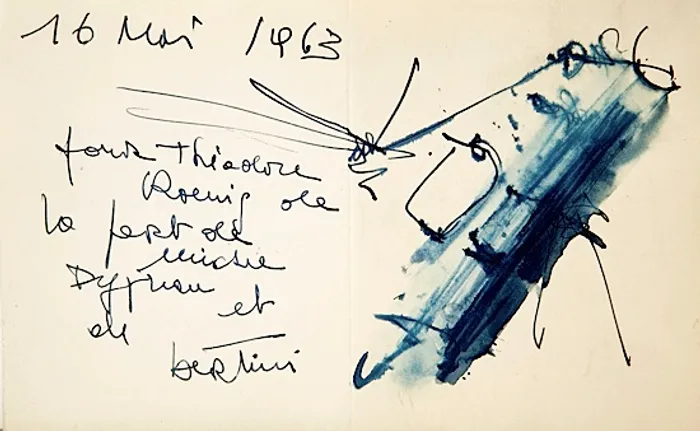 16 Mai 1963
pour Théodore
Koenig de
la part de
Dypreau et
de
bertini